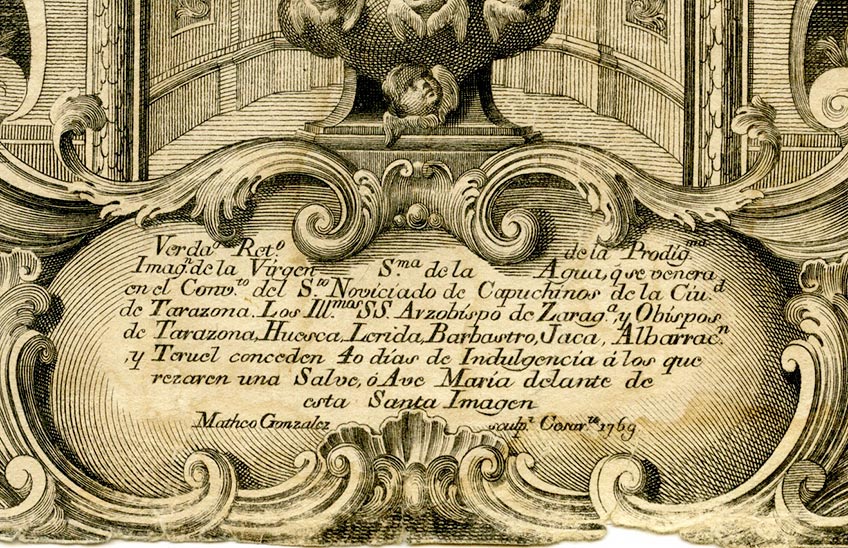 Verda.º Ret.º de la Prodig.ma
Imag.n de la Virgen S.ma de la Agua, q se venera
en el Conv.to del S.to Noviciado de Capuchinos de la Ciu.d
de Tarazona. Los Ill.mos SS. Arzobispo de Zarag.a, y Obispos
de Tarazona, Huesca, Lerida, Barbastro, Jaca, Albarrac.n
,y Teruel conceden 40 dias de Indulgencia á los que
rezaren una Salve, ó Ave María delante de
esta Santa Imagen
Matheo Gonzalez sculp.t Cesar.te 1769